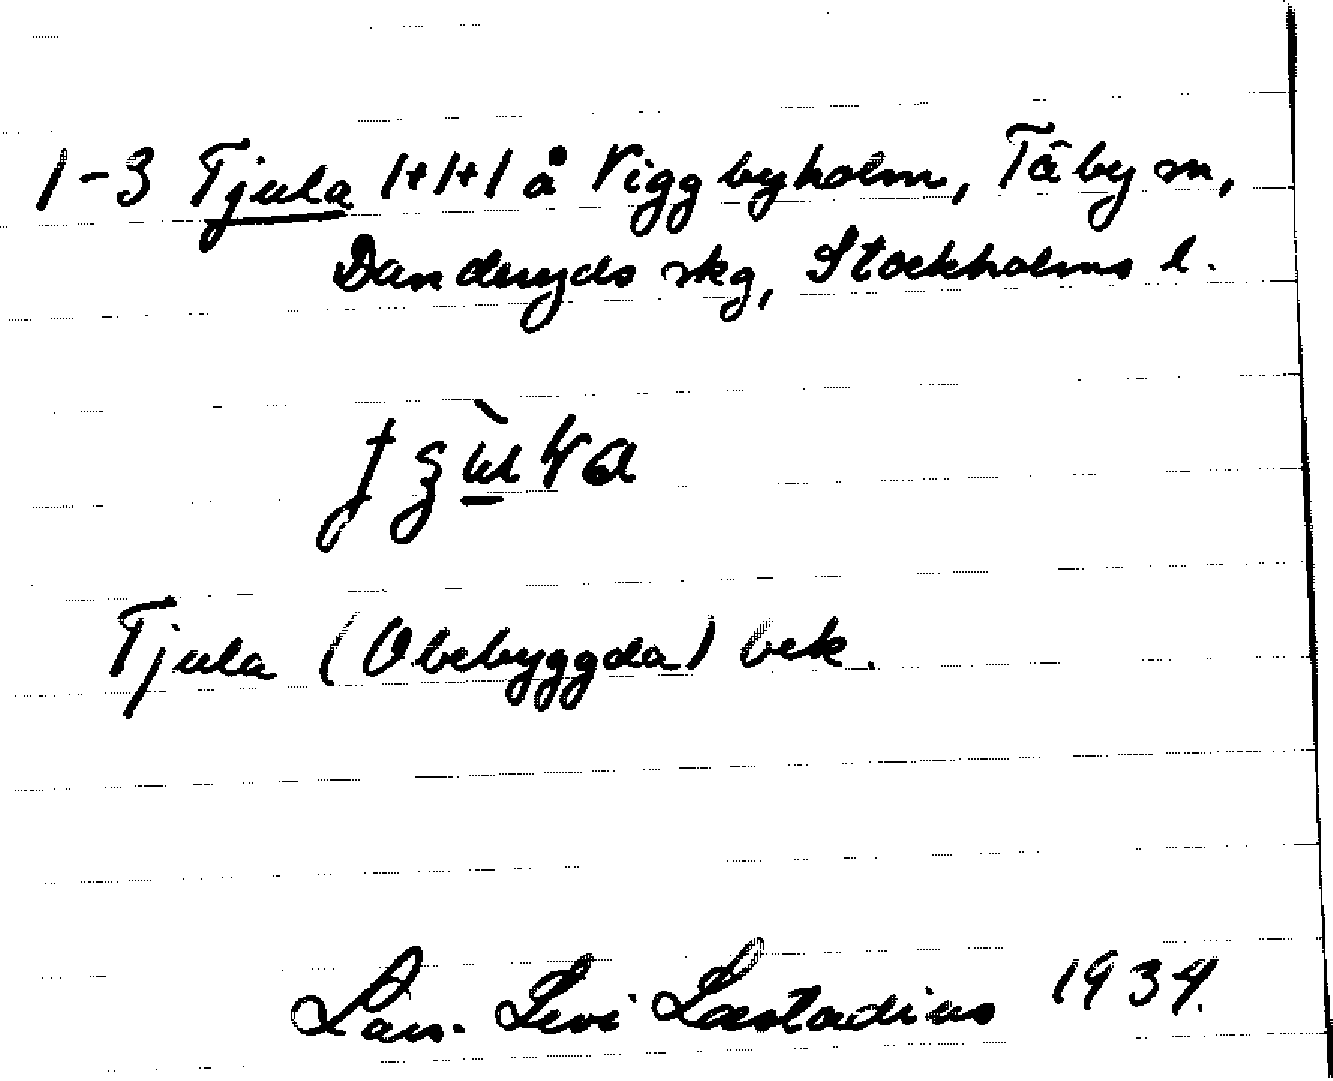 1-3 Tjula 1+1+1 å Viggbyholm, Täby sn,
Danderyds skg, Stockholms l.
Tjula (Obebyggda) bek.
Lars-Levi Læstadius 1934.